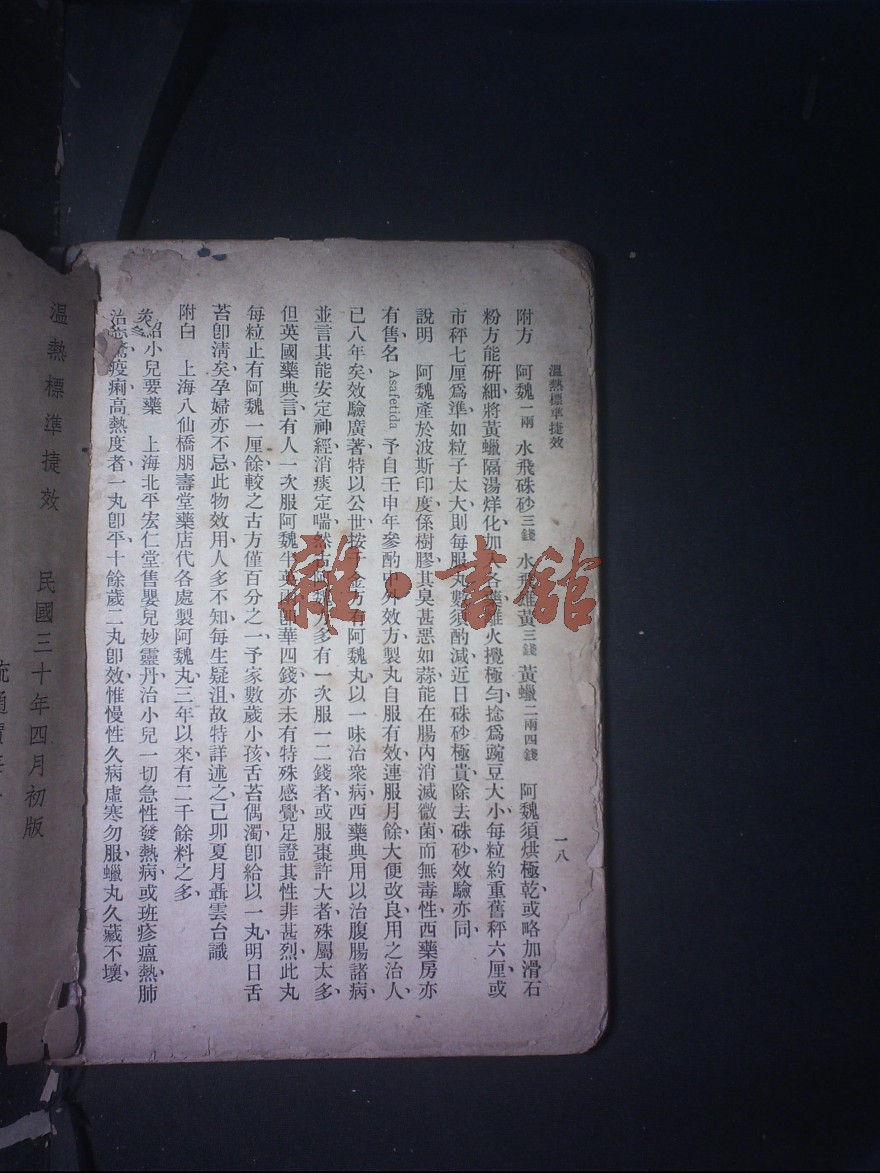 溫熱標準捷效
一八
附方 阿魏一兩 水飛硃砂三錢 水飛雄黃三錢 黃蠟二兩四錢 阿魏須烘極乾、或略加滑石
粉方能研細、將黃蠟隔湯烊化、加入各藥離火攪極勻、捻爲豌豆大小、每粒約重舊秤六厘、或
市秤七厘爲準、如粒子太大、則每服丸數須酌減、近日硃砂極貴、除去硃砂、效驗亦同、
說明 阿魏產於波斯印度、係樹膠、其臭甚惡如蒜、能在腸內消滅黴菌、而無毒性、西藥房亦
有售、名Asafetida予自壬申年參酌中外效方製丸自服有效、連服月餘、大便改良、用之治人、
已八年矣、效驗廣著、特以公世、按千金方有阿魏丸、以一味治衆病、西藥典用以治腹腸諸病、
並言其能安定神經、消痰定喘、然古阿魏丸多有一次服一二錢者、或服棗許大者、殊屬太多、
但英國藥典言有人一次服阿魏半英兩、卽華四錢、亦未有特殊感覺、足證其性非甚烈、此丸
每粒止有阿魏一厘餘、較之古方僅百分之一、予家數歲小孩、舌苔偶濁、卽給以一丸、明日舌
苔卽清矣、孕婦亦不忌、此物效用、人多不知、每生疑沮、故特詳述之、己卯夏月聶雲台識
附白 上海八仙橋朋壽堂藥店代各處製阿魏丸、三年以來、有二千餘料之多、
紹小兒要藥 上海北平宏仁堂售嬰兒妙靈丹、治小兒一切急性發熱病、或班疹瘟熱肺
治急驚疫痢高熱度者、一丸卽平、十餘歲二丸卽效、惟慢性久病虛寒勿服、蠟丸久藏不壞、
溫熱標準捷效 民國三十年四月初版
流通